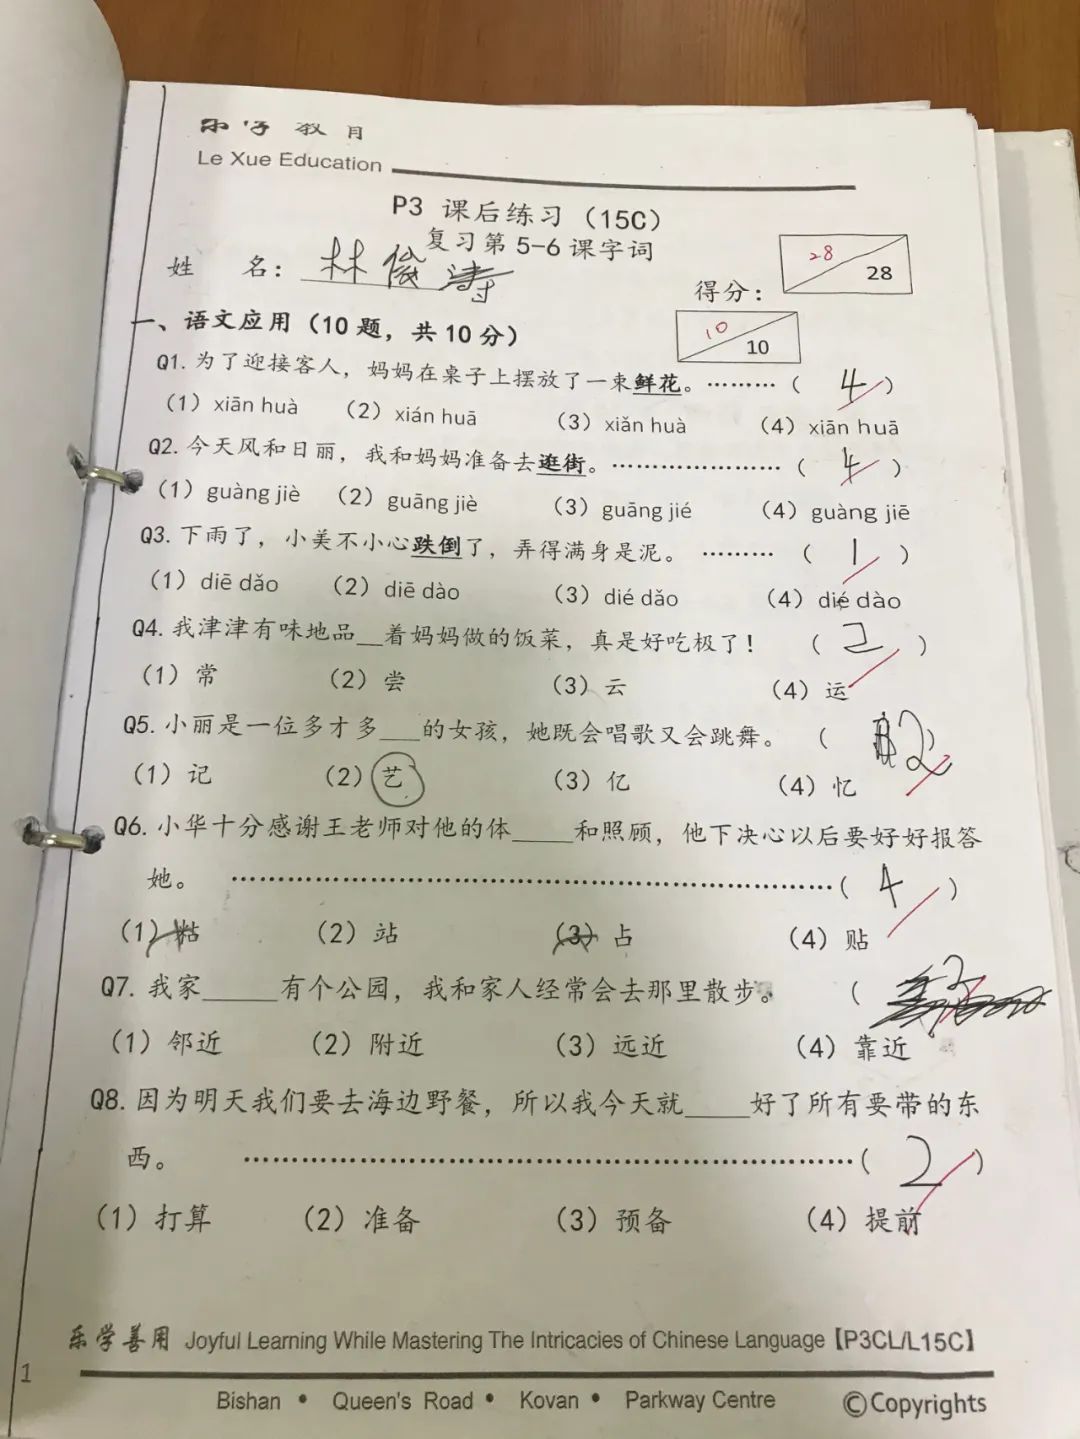 乐学教育
Le Xue Education
P3 课后练习（15C）
复习第 5-6 课字词
姓 名： 林俊涛
得分： 28 28
一、语文应用（10 题，共 10 分） 10 10
Q1. 为了迎接客人，妈妈在桌子上摆放了一束鲜花。………（ 4 ）
（1）xiān huà （2）xián huā （3）xiǎn huà （4）xiān huā
Q2. 今天风和日丽，我和妈妈准备去逛街。…………………（ 4 ）
（1）guàng jiè （2）guāng jiè （3）guāng jié （4）guàng jiē
Q3. 下雨了，小美不小心跌倒了，弄得满身是泥。………（ 1 ）
（1）diē dǎo （2）diē dào （3）dié dǎo （4）dié dào
Q4. 我津津有味地品__着妈妈做的饭菜，真是好吃极了！（ 2 ）
（1）常 （2）尝 （3）云 （4）运
Q5. 小丽是一位多才多___的女孩，她既会唱歌又会跳舞。（ 2 ）
（1）记 （2）艺 （3）亿 （4）忆
Q6. 小华十分感谢王老师对他的体____和照顾，他下决心以后要好好报答
她。 ……………………………………………………………（ 4 ）
（1）粘 （2）站 （3）占 （4）贴
Q7. 我家_____有个公园，我和家人经常会去那里散步。（ 2
（1）邻近 （2）附近 （3）远近 （4）靠近
Q8. 因为明天我们要去海边野餐，所以我今天就____好了所有要带的东
西。 ……………………………………………………………（ 2 ）
（1）打算 （2）准备 （3）预备 （4）提前
乐学善用 Joyful Learning While Mastering The Intricacies of Chinese Language【P3CL/L15C】
1
Bishan • Queen's Road • Kovan • Parkway Centre ©Copyrights